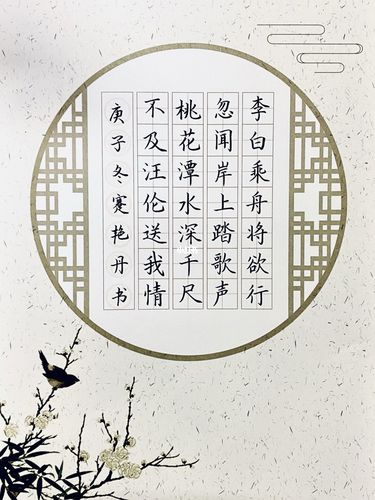 李白乘舟将欲行
忽闻岸上踏歌声
桃花潭水深千尺
不及汪伦送我情
庚子冬蹇艳丹书